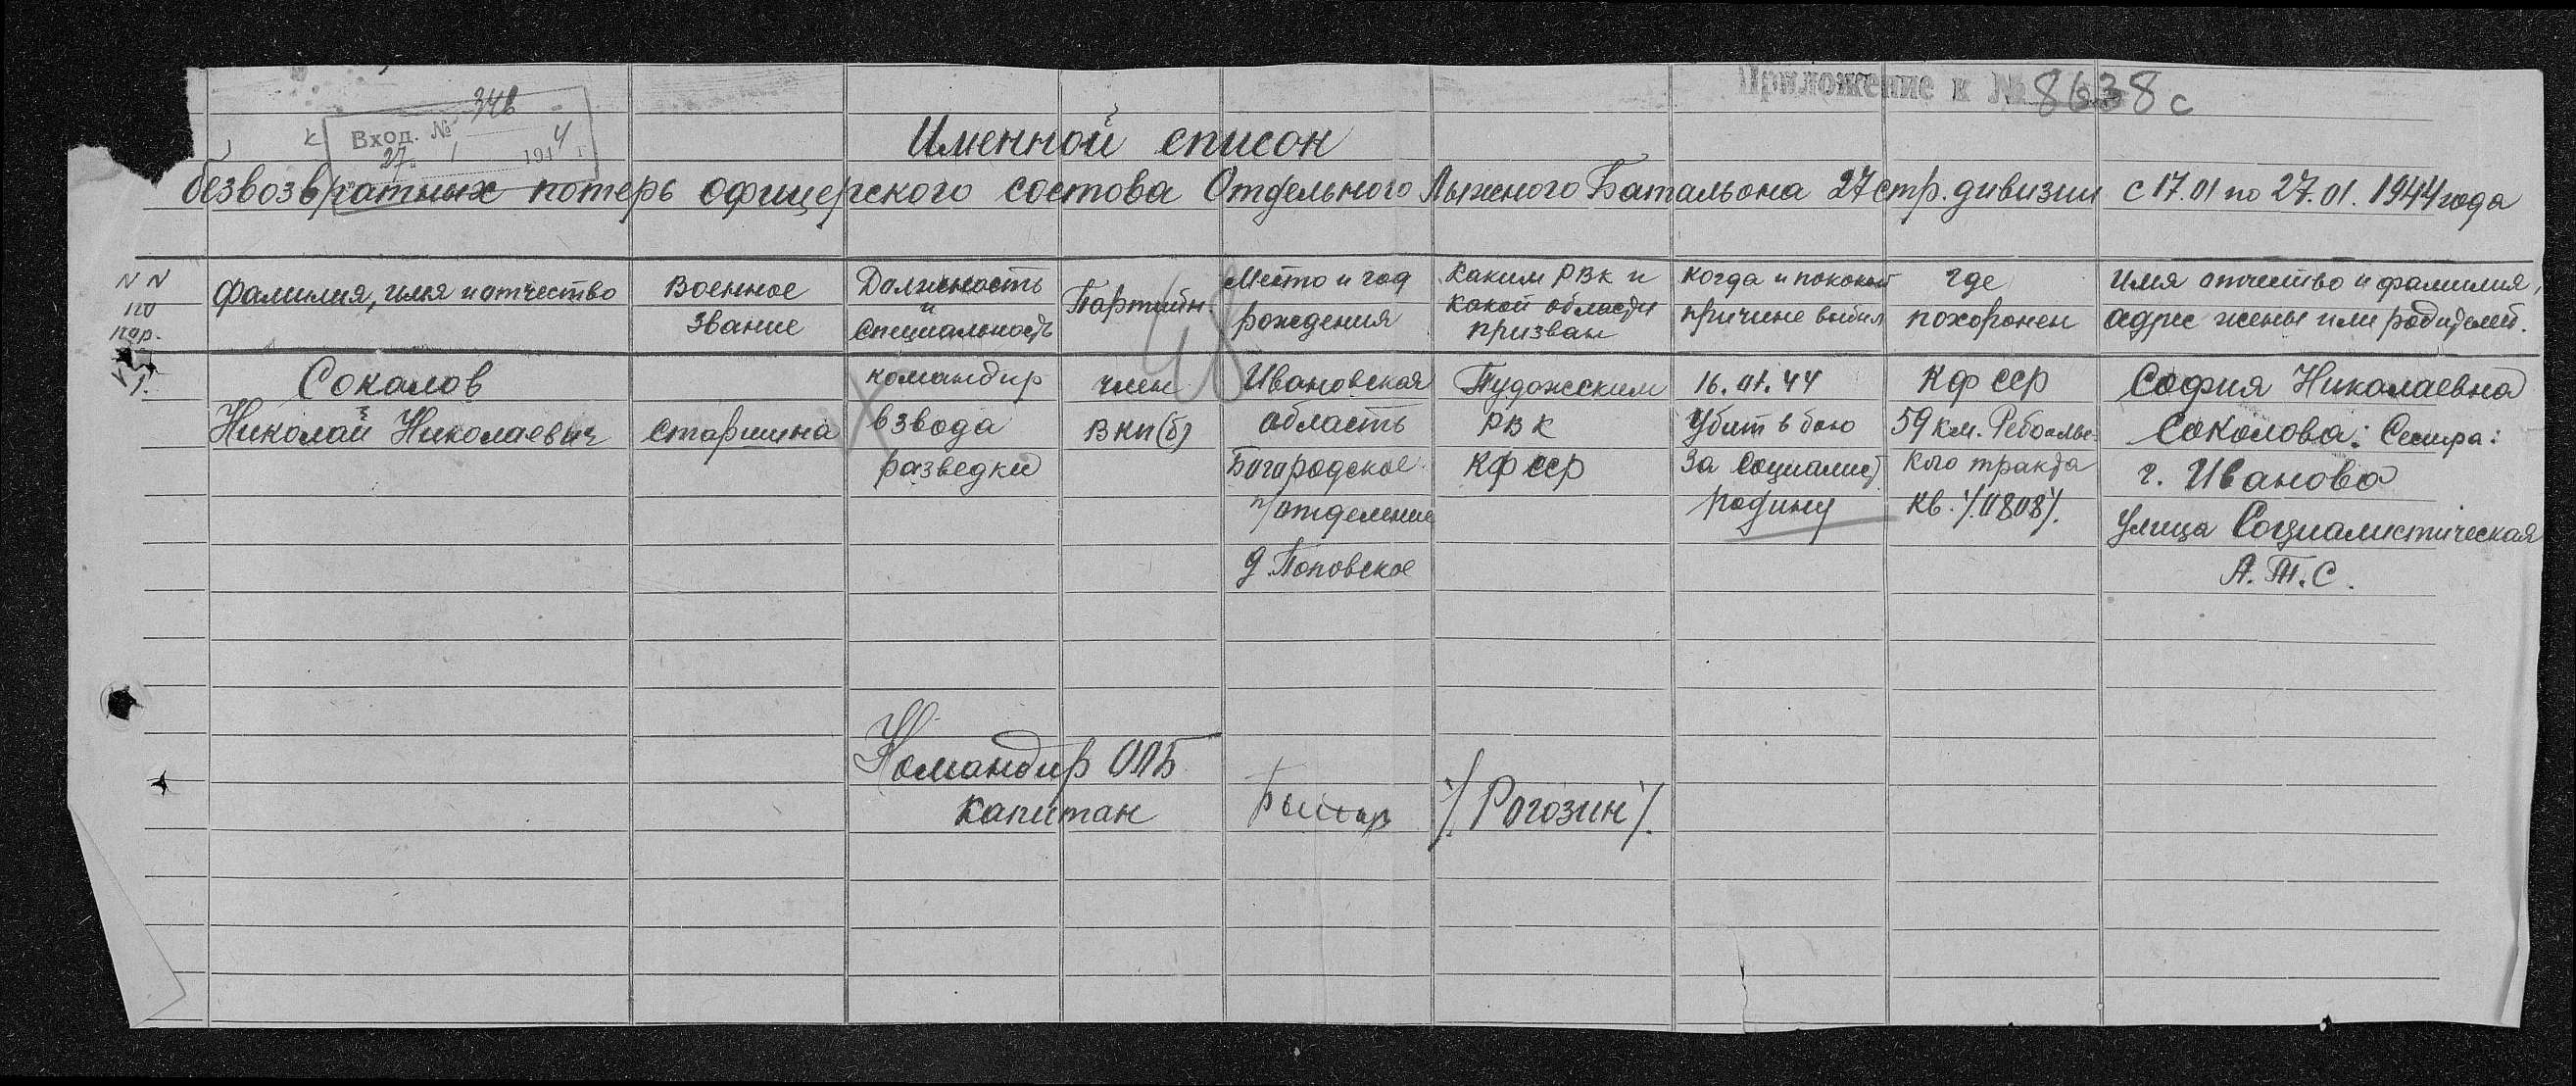 Приложение к № 8638с
Вход. № 346
27. 1 1944 г.
Именной список
безвозвратных потерь офицерского состова Отдельного Лыжного Батальона 27 стр. дивизии с 17.01 по 27.01. 1944 года
N N по пор.
Фамилия, имя и отчество
Военное звание
Должность и специальность
Партийн.
Место и год рождения
Каким РВК и какой области призван
Когда и по какой причине выбыл
где похоронен
Имя отчество и фамилия, адрес жены или родителей.
48
1.
Соколов
Николай Николаевич
старшина
командир
взвода
разведки
член
ВКП(б)
Ивановская
область
Богородское
п/отделение
д. Поповское
Пудожским
РВК
КФССР
16.01.44
Убит в бою
за социалист
родину
КФССР
59 км. Ребольс-
кого тракта
кв. /.0808/.
София Николаевна
Соколова: Сестра:
г. Иваново
улица Социалистическая
А.Т.С.
Командир ОЛБ
капитан
/Рогозин/.